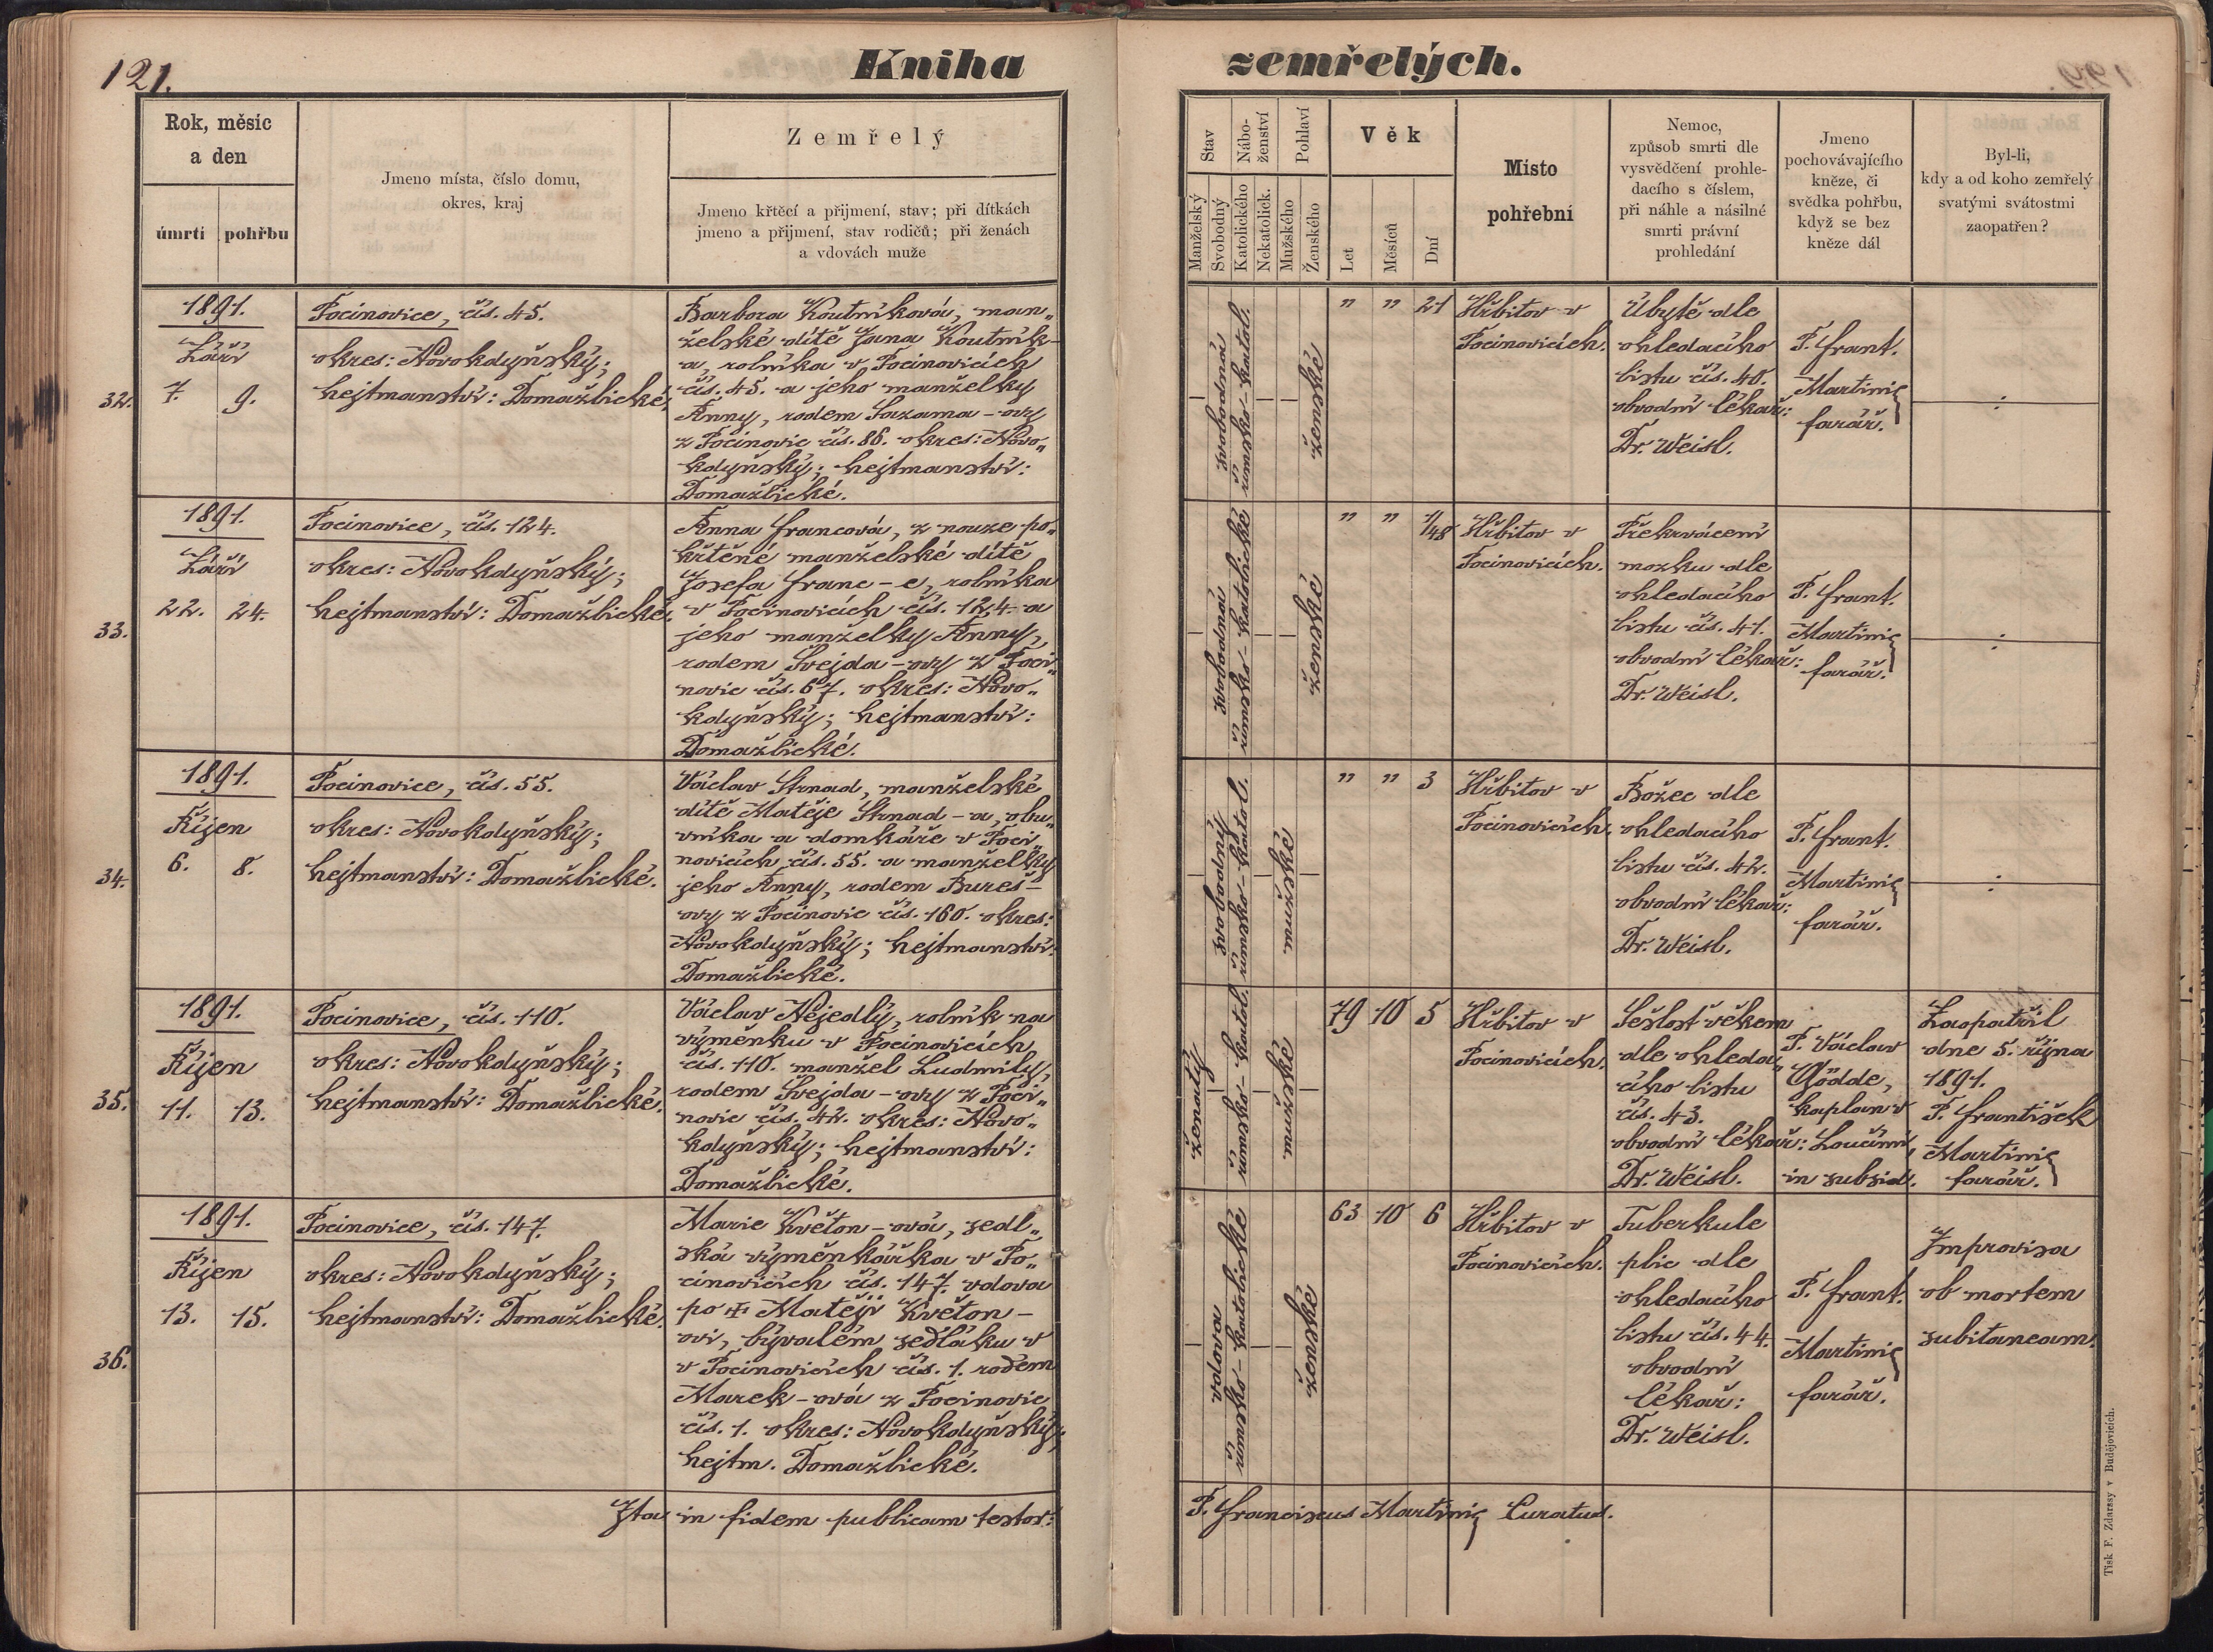 121.
Kniha zemřelých.
Rok, měsíc
a den
úmrtí pohřbu
Jmeno místa, číslo domu,
okres, kraj
Zemřelý
Jmeno křtěcí a přijmení, stav; při dítkách
jmeno a přijmení, stav rodičů; při ženách
a vdovách muže
Stav
Nábo-
ženství
Pohlaví
Manželský
Svobodný
Katolického
Nekatolick.
Mužského
Ženského
Věk
Let
Měsíců
Dní
Místo
pohřební
Nemoc,
způsob smrti dle
vysvědčení prohle-
dacího s číslem,
při náhle a násilné
smrti právní
prohledání
Jmeno
pochovávajícího
kněze, či
svědka pohřbu,
když se bez
kněze dál
Byl-li,
kdy a od koho zemřelý
svatými svátostmi
zaopatřen?
32.
1891.
Září
7. 9.
Pocinovice, čís. 45.
okres: Novokdyňský;
hejtmanství: Domažlické.
Barbora Koutníková, man„
želské dítě Jana Koutník-
a, rolníka v Pocinovicích
čís. 45. a jeho manželky
Anny, rodem Sazama-ovy
z Pocinovic čís. 86. okres: Novo„
kdyňský; hejtmanství:
Domažlické.
svobodná
římsko-katol.
ženské
" " 21
Hřbitov v
Pocinovicích.
Úbytě dle
ohledacího
listu čís. 40.
obvodní lékař:
Dr. Weisl.
P. Frant.
Martinic
farář.
33.
1891.
Září
22. 24.
Pocinovice, čís. 124.
okres: Novokdyňský;
hejtmanství: Domažlické.
Anna Francová, z nouze po„
křtěné manželské dítě
Josefa Franc-e, rolníka
v Pocinovicích čís. 124. a
jeho manželky Anny,
rodem Švejda-ovy z Poci„
novic čís. 67. okres: Novo„
kdyňský; hejtmanství:
Domažlické.
svobodná
římsko-katolické
ženské
" " 1/48
Hřbitov v
Pocinovicích.
Překrvácení
mozku dle
ohledacího
listu čís. 41.
obvodní lékař:
Dr. Weisl.
P. Frant.
Martinic
farář.
34.
1891.
Říjen
6. 8.
Pocinovice, čís. 55.
okres: Novokdyňský;
hejtmanství: Domažlické.
Václav Strnad, manželské
dítě Matěje Strnad-a, obu„
vníka a domkáře v Poci„
novicích čís. 55. a manželky
jeho Anny, rodem Bureš-
ovy z Pocinovic čís. 160. okres:
Novokdyňský; hejtmanství:
Domažlické.
svobodný
římsko-katol.
mužské
" " 3
Hřbitov v
Pocinovicích.
Božec dle
ohledacího
listu čís. 42.
obvodní lékař:
Dr. Weisl.
P. Frant.
Martinic
farář.
35.
1891.
Říjen
11. 13.
Pocinovice, čís. 110.
okres: Novokdyňský;
hejtmanství: Domažlické.
Václav Nejedlý, rolník na
výměnku v Pocinovicích
čís. 110. manžel Ludmily,
rodem Švejda-ovy z Poci„
novic čís. 42. okres: Novo„
kdyňský; hejtmanství:
Domažlické.
ženatý
římsko-katol.
mužské
79 10 5
Hřbitov v
Pocinovicích.
Sešlost věkem
dle ohleda„
cího listu
čís. 43.
obvodní lékař:
Dr. Weisl.
P. Václav
Gödde,
kaplan v
Loučimi,
in subsid.
Zaopatřil
dne 5. října
1891.
P. František
Martinic
farář.
36.
1891.
Říjen
13. 15.
Pocinovice, čís. 147.
okres: Novokdyňský;
hejtmanství: Domažlické.
Marie Květon-ová, sedl„
ská výměnkářka v Po„
cinovicích čís. 147. vdova
po † Matěji Květon-
ovi, bývalém sedláku v
v Pocinovicích čís. 1. rodem
Marek-ová z Pocinovic
čís. 1. okres: Novokdyňský;
hejtm. Domažlické.
vdova
římsko-katolické
ženské
63 10 6
Hřbitov v
Pocinovicích.
Tuberkule
plic dle
ohledacího
listu čís. 44.
obvodní
lékař:
Dr. Weisl.
P. Frant.
Martinic
farář.
Improvisa
ob mortem
subitaneam.
Ita in fidem publicam testor: P. Franciscus Martinic Curatus.
Tisk F. Zdarssy v Budějovicích.